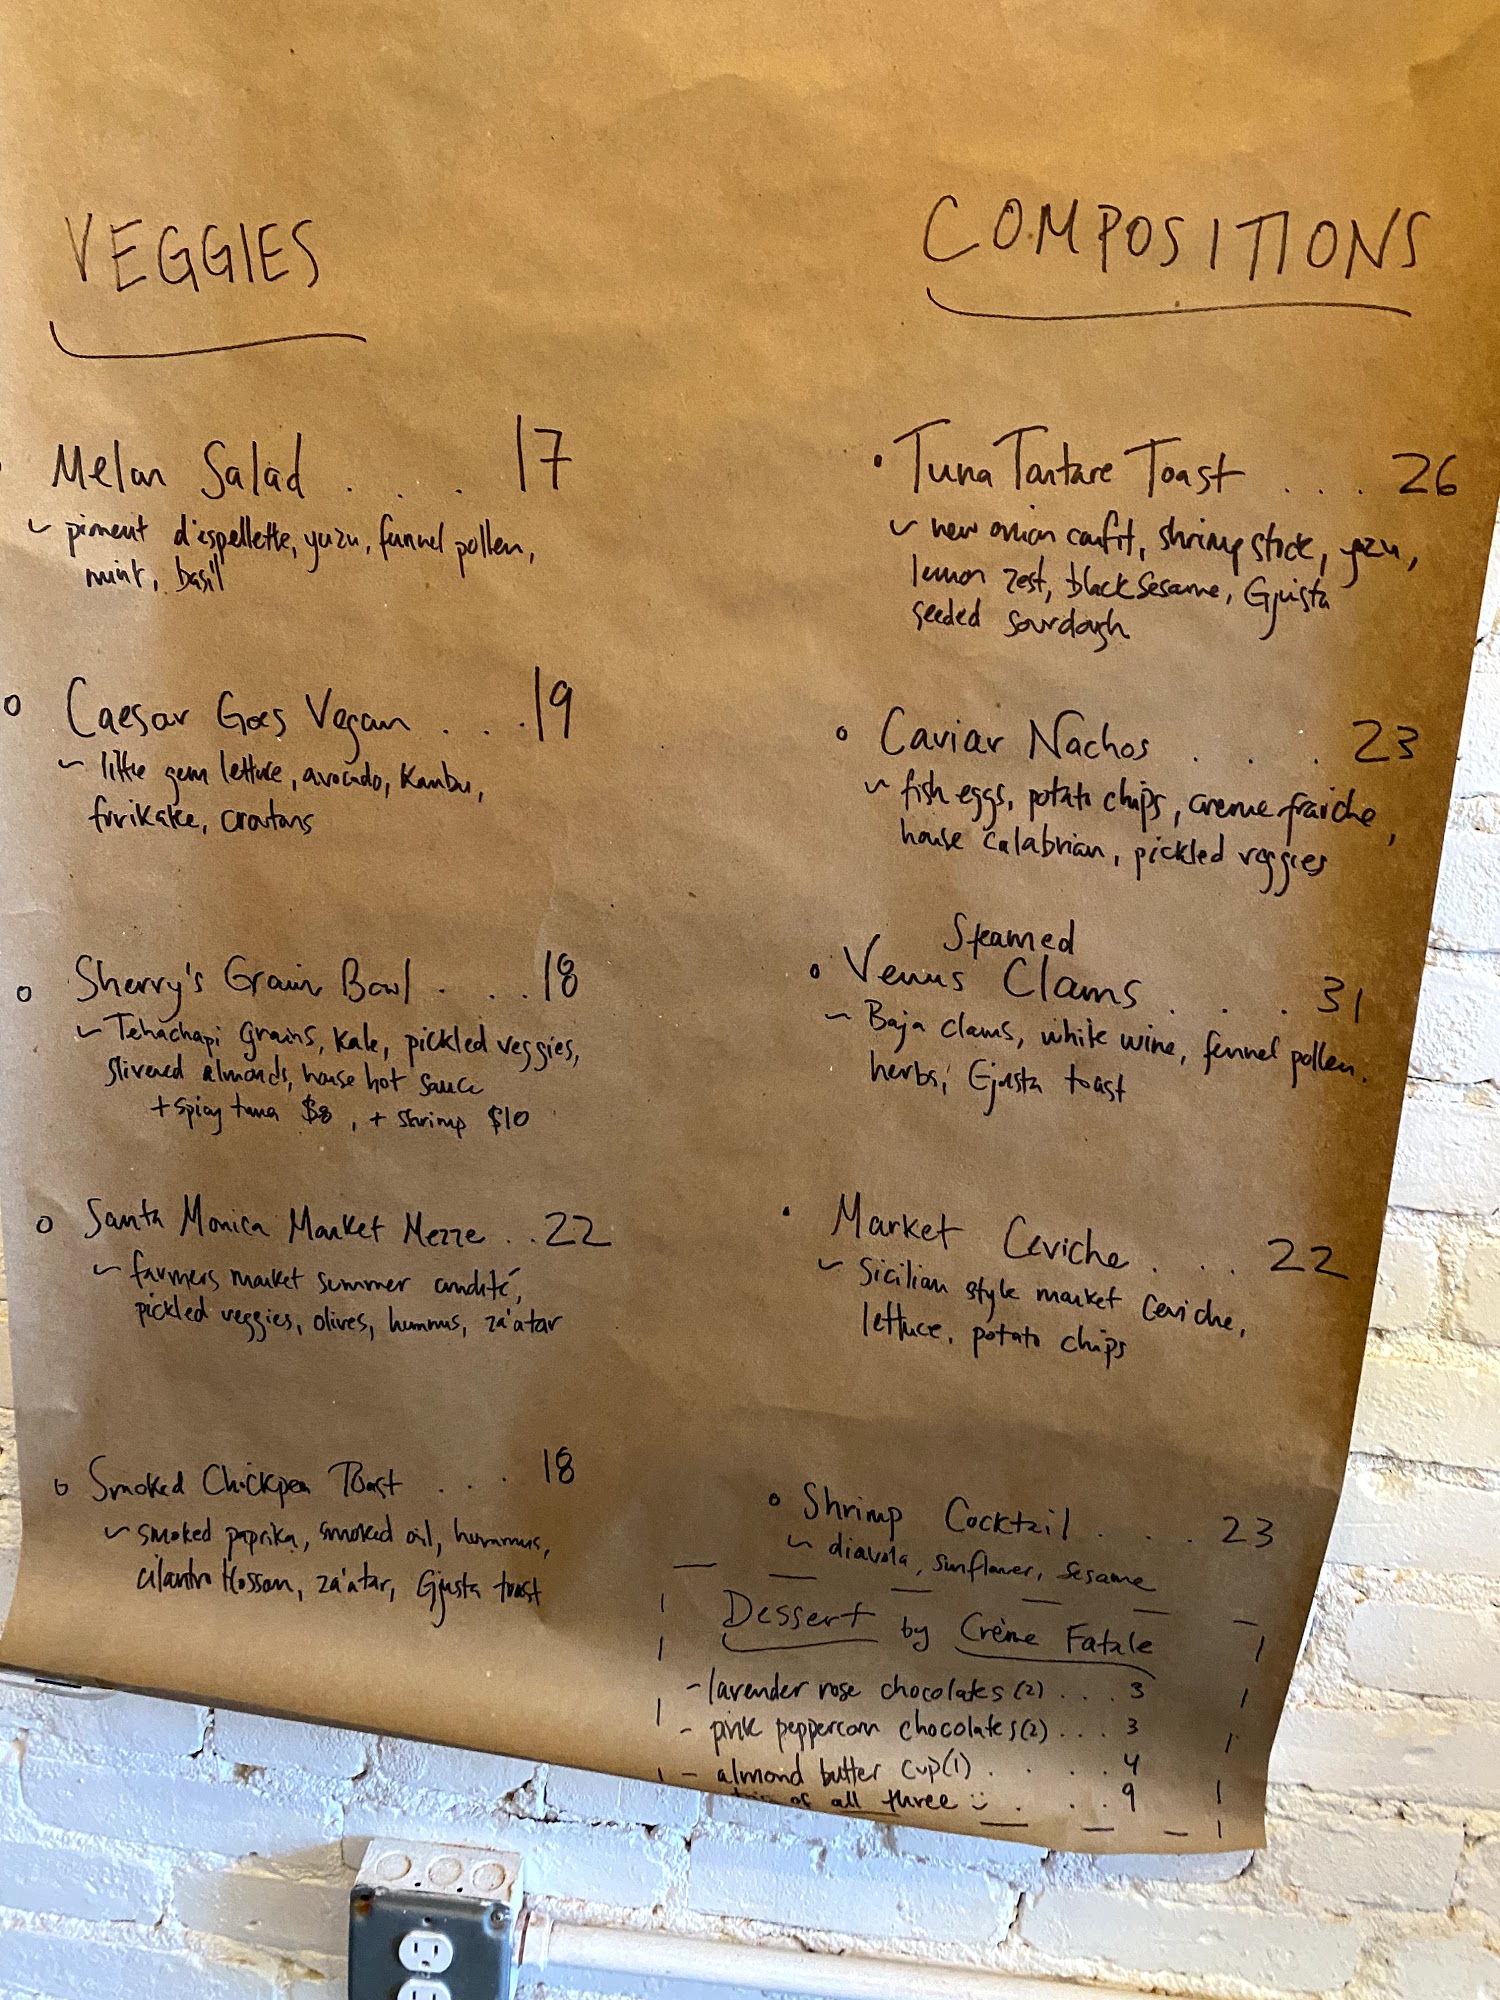 VEGGIES
Melon Salad . . . 17
~ piment d'espellette, yuzu, fennel pollen,
mint, basil
Caesar Goes Vegan . . . 19
~ little gem lettuce, avocado, Kombu,
furikake, croutons
Sherry's Grain Bowl . . . 18
~ Tehachapi grains, kale, pickled veggies,
slivered almonds, house hot sauce
+ spicy tuna $8, + shrimp $10
Santa Monica Market Mezze . . 22
~ farmers market summer crudité,
pickled veggies, olives, hummus, za'atar
Smoked Chickpea Toast . . . 18
~ smoked paprika, smoked oil, hummus,
cilantro blossom, za'atar, Gjusta toast
COMPOSITIONS
Tuna Tartare Toast . . . 26
~ new onion confit, shrimp stock, yuzu,
lemon zest, black sesame, Gjusta
seeded sourdough
Caviar Nachos . . . 23
~ fish eggs, potato chips, creme fraiche,
house calabrian, pickled veggies
Steamed
Venus Clams . . . 31
~ Baja clams, white wine, fennel pollen,
herbs, Gjusta toast
Market Ceviche . . . 22
~ Sicilian style market ceviche,
lettuce, potato chips
Shrimp Cocktail . . . 23
~ diavola, sunflower, sesame
Dessert by Crème Fatale
- lavender rose chocolates (2) . . . 3
- pink peppercorn chocolates (2) . . . 3
- almond butter cup (1) . . . . 4
of all three . . . 9